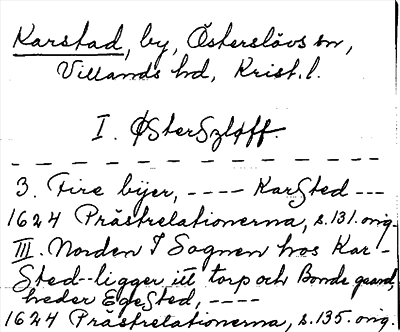 Karstad, by, Österslövs sn,
Villands hd, Krist. l.
I. ØsterSzløff.
3. Fire bijer, ---- KarSted ---
1624 Prästrelationerna, s. 131. orig.
III. Norden I Sognen hos Kar-
Sted--ligger itt torp och Bonde gaard,
heder EgeSted, ----
1624 Prästrelationerna, s. 135. orig.